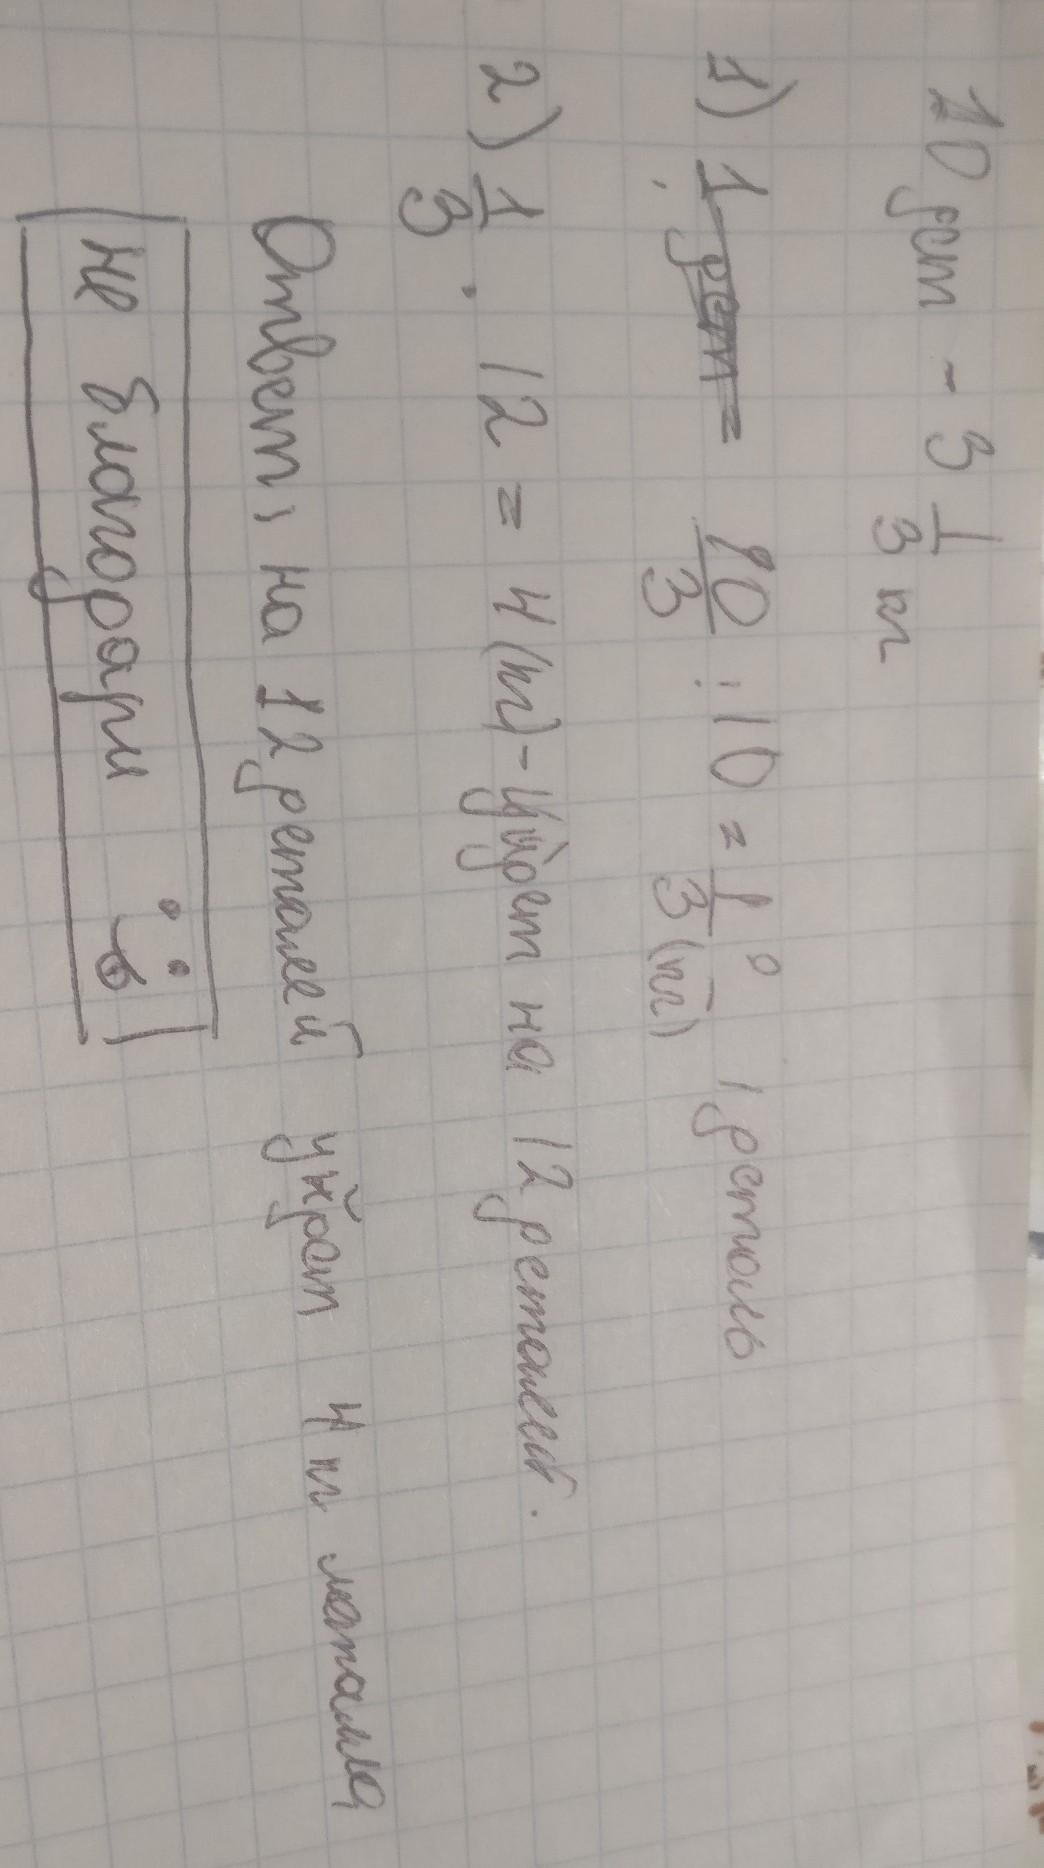 10 дет - 3 1/3 кг
1) 1 дет = 10/3 : 10 = 1/3 (кг) 1 деталь
2) 1/3 · 12 = 4 (кг) - идёт на 12 деталей.
Ответ: на 12 деталей уйдёт 4 кг металла
Не благодари